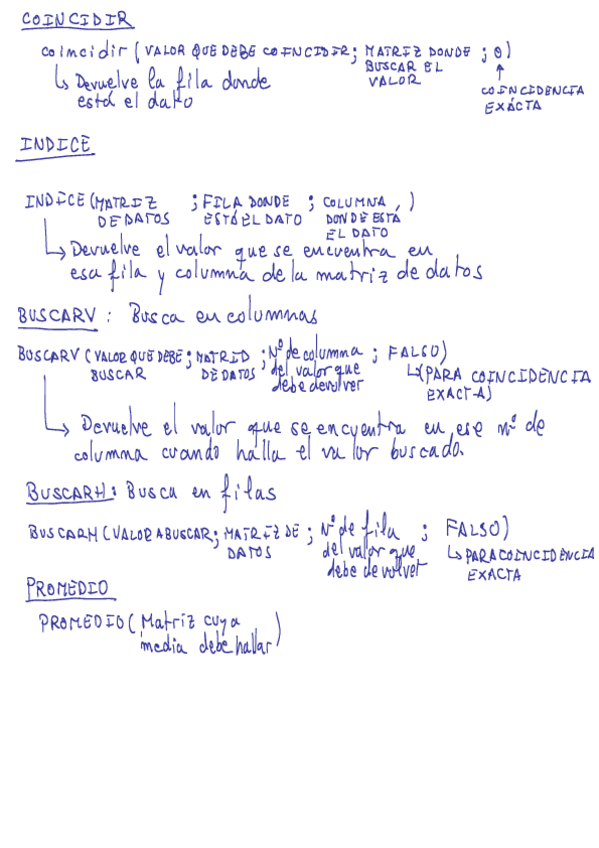 COINCIDIR
coincidir (VALOR QUE DEBE COINCIDIR; MATRIZ DONDE BUSCAR EL VALOR ; 0)
↳ Devuelve la fila donde
está el dato
↑
COINCIDENCIA
EXÁCTA
INDICE
INDICE (MATRIZ DE DATOS ; FILA DONDE ESTÁ EL DATO ; COLUMNA DONDE ESTA EL DATO , )
↳ Devuelve el valor que se encuentra en
esa fila y columna de la matriz de datos
BUSCARV : Busca en columnas
BUSCARV (VALOR QUE DEBE BUSCAR ; MATRID DE DATOS ; Nº de columna del valor que debe devolver ; FALSO)
↳ (PARA COINCIDENCIA
EXACTA)
↳ Devuelve el valor que se encuentra en ese nº de
columna cuando halla el valor buscado.
BUSCARH : Busca en filas
BUSCARH (VALOR A BUSCAR; MATRIZ DE DATOS ; Nº de fila del valor que debe devolver ; FALSO)
↳ PARA COINCIDENCIA
EXACTA
PROMEDIO
PROMEDIO ( Matriz cuya
media debe hallar )